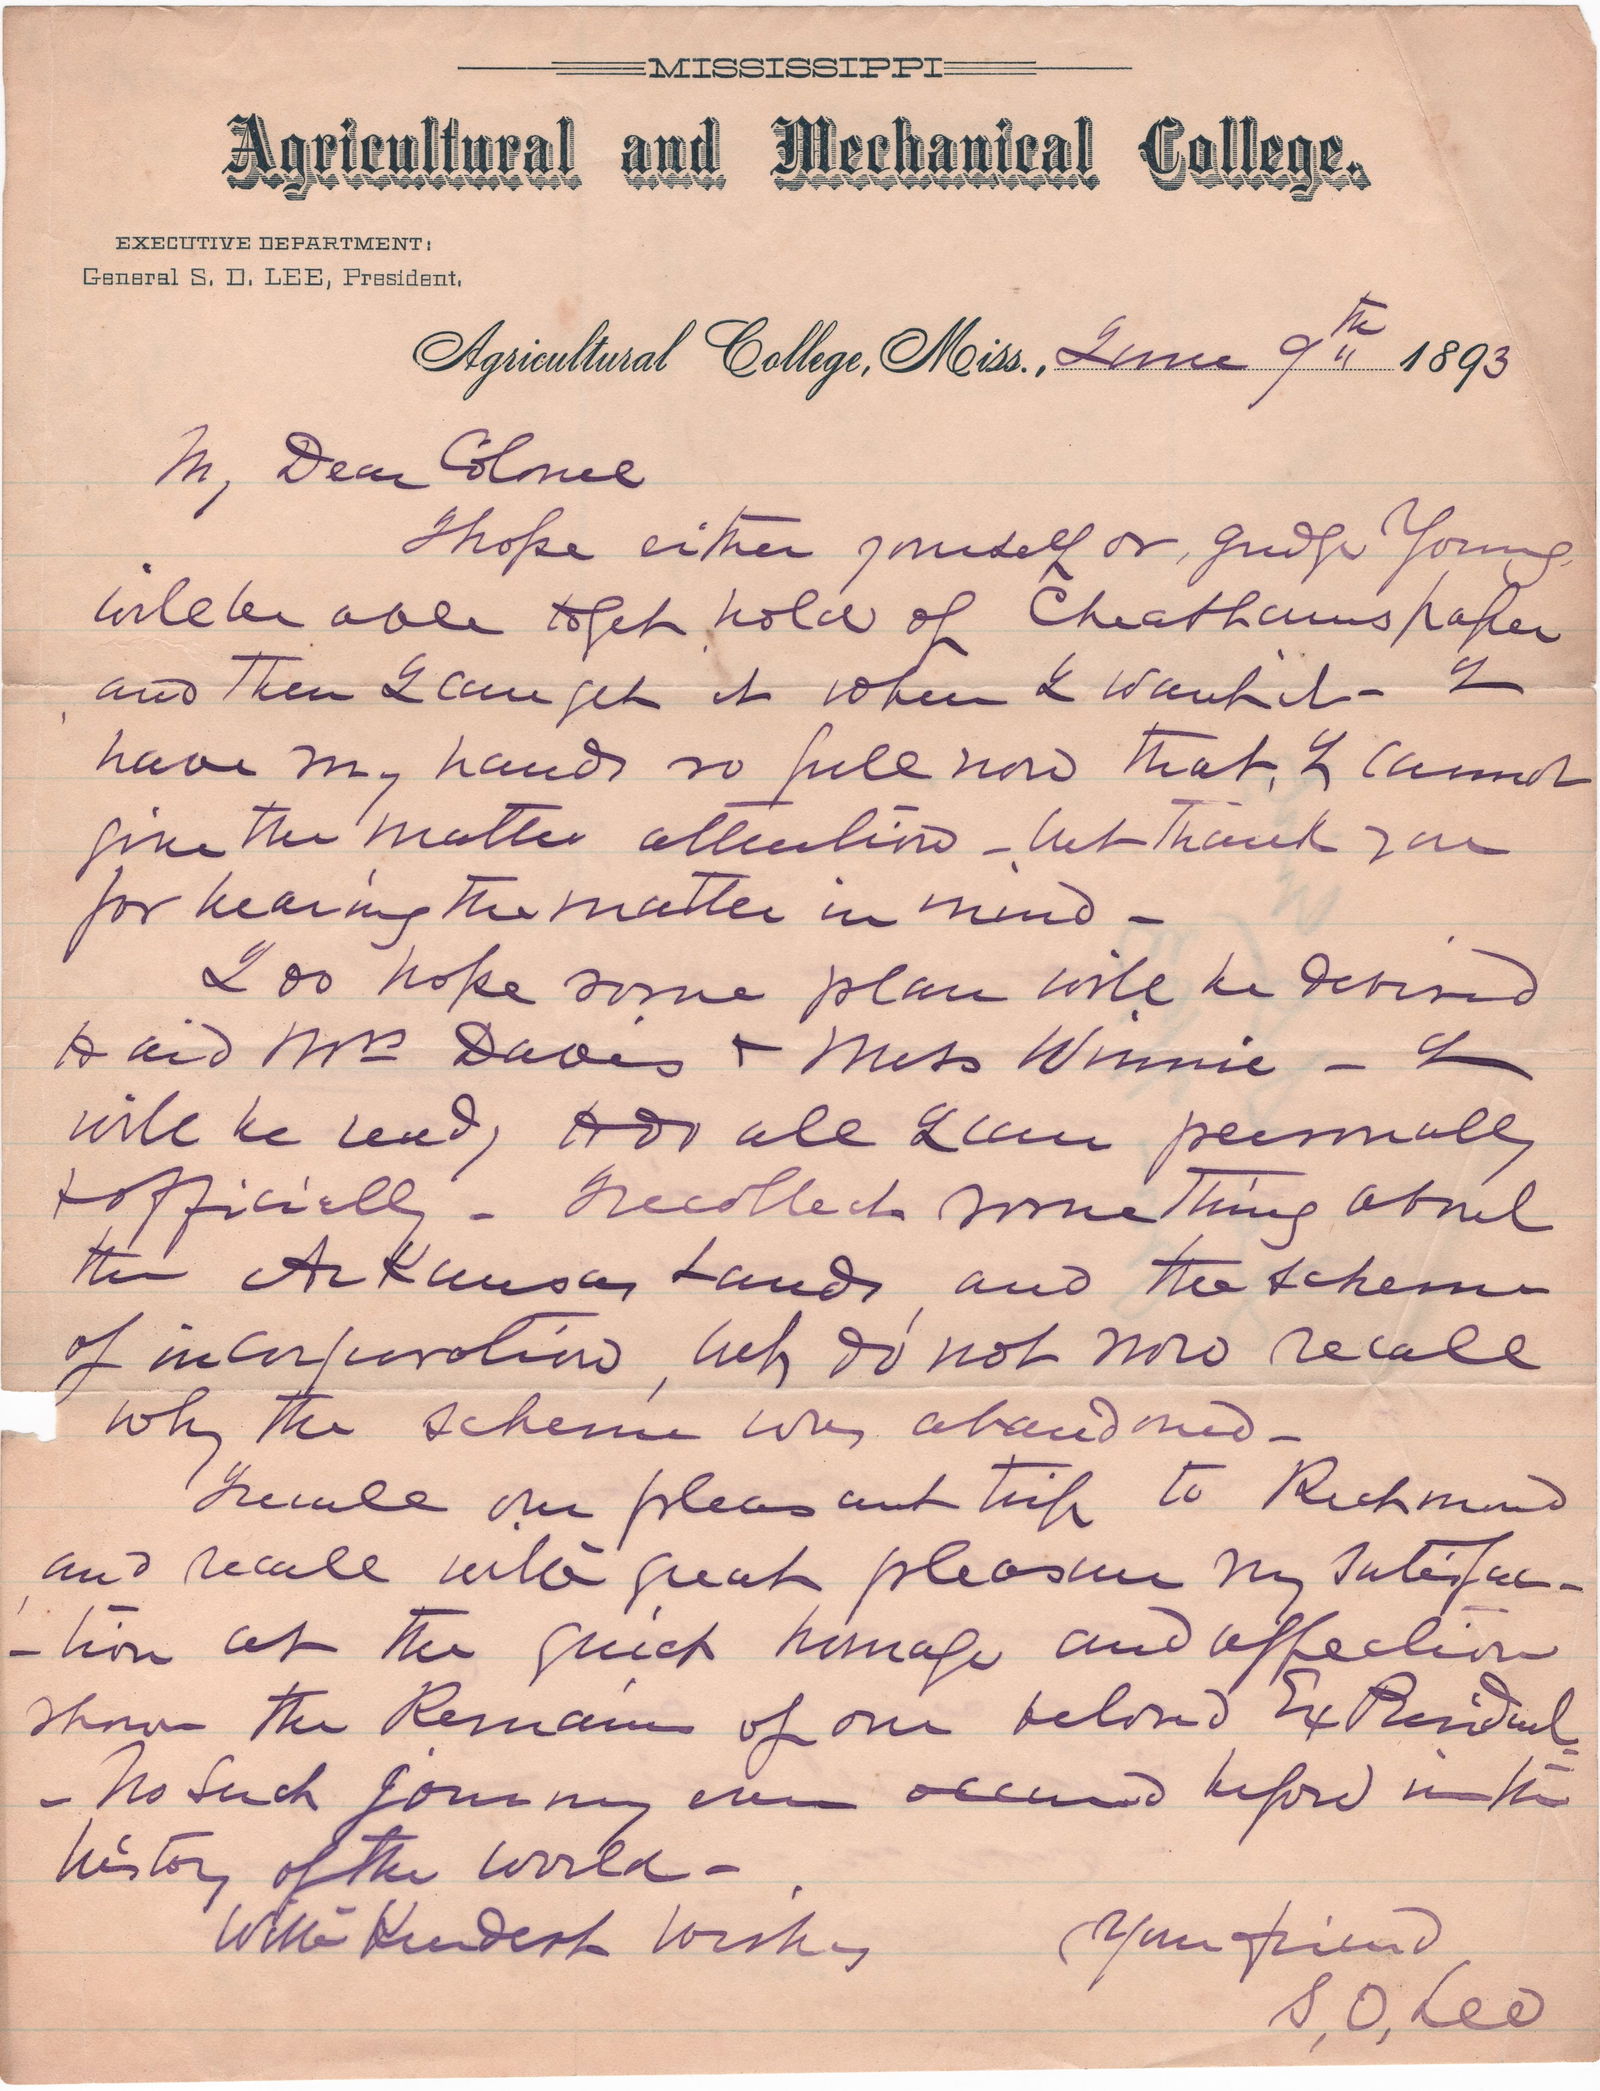 MISSISSIPPI
Agricultural and Mechanical College.
EXECUTIVE DEPARTMENT:
General S. D. LEE, President.
Agricultural College, Miss., June 9th 1893
My Dear Colonel
I hope either yourself or, Judge Young
will be able to get hold of Cheathams paper
and then I can get it when I want it - I
have my hands so full now that, I cannot
give the matter attention - but thank you
for bearing the matter in mind -
I do hope some plan will be devised
to aid Mrs Davis & Miss Winnie - I
will be ready to do all I can personally
& officially - I recollect something about
the Arkansas Lands, and the scheme
of incorporation, but do not now recall
why the scheme was abandoned -
I recall our pleasant trip to Richmond
and recall with great pleasure my satisfac-
-tion at the quick homage and affection
shown the Remains of our beloved Ex President
- No such journey ever occurred before in the
history of the world -
With Kindest Wishes
Your friend
S, D, Lee